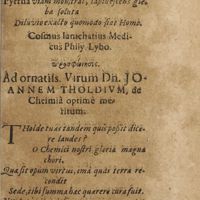 Pyrrha viam monstrat, rapidis gens gle-
ba soluta
Diluvio exacto quomodo fiet Homo.
Cosmus Iarachatius Medi-
cus Phil. Lybo.
Ad ornatiss. Virum Dn. JO-
ANNEM THOLDIVM, de
Cheimia optimè me-
ritum.
THolde tuas tandem quis possit dice-
re laudes?
O Chemici nostri gloria magna
chori.
Quasit opum virtus, imâ quas terra re-
condit
Sede, tibi summa hac quærere cura fuit.